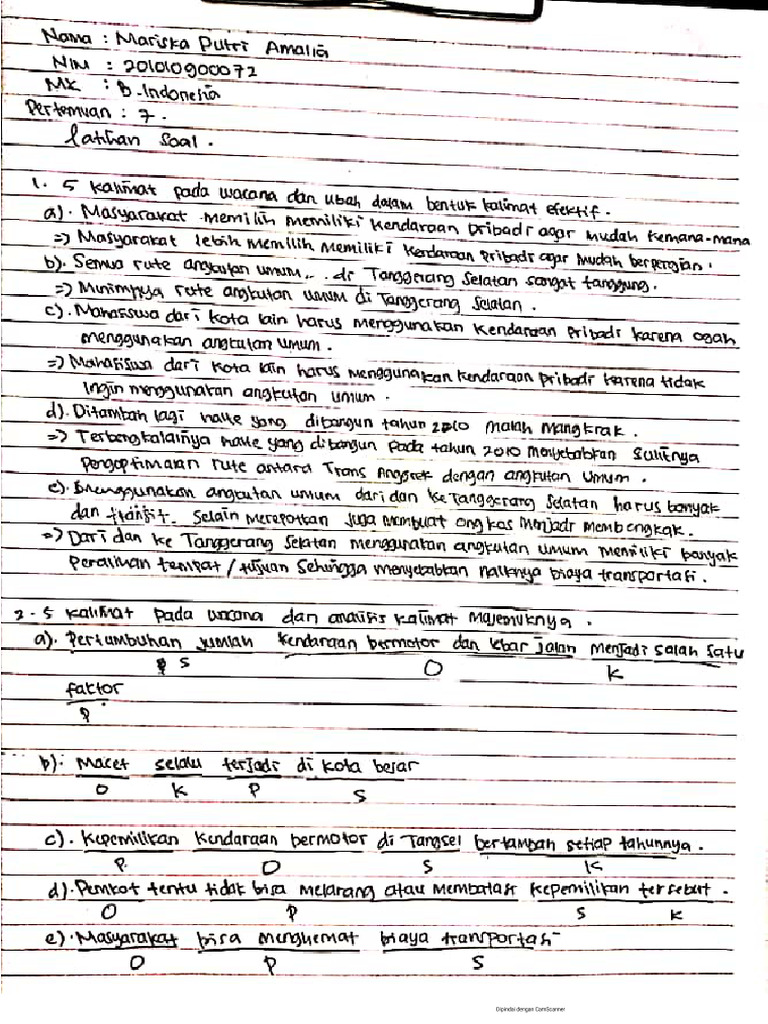 Nama : Mariska Putri Amalia
NIM : 201010900072
MK : B. Indonesia
Pertemuan : 7.
latihan soal.
1. 5 kalimat pada wacana dan ubah dalam bentuk kalimat efektif.
a). Masyarakat memilih memiliki kendaraan pribadi agar mudah kemana-mana
=> Masyarakat lebih memilih memiliki kendaraan pribadi agar mudah berpergian.
b). Semua rute angkutan umum... di Tanggerang Selatan sangat tanggung.
=> Minimnya rute angkutan umum di Tanggerang Selatan.
c). Mahasiswa dari kota lain harus menggunakan kendaraan pribadi karena ogah
menggunakan angkutan umum.
=> Mahasiswa dari kota lain harus menggunakan kendaraan pribadi karena tidak
ingin menggunakan angkutan umum.
d). Ditambah lagi halte yang dibangun tahun 2010 malah mangkrak.
=> Terbengkalainya halte yang dibangun pada tahun 2010 menyebabkan sulitnya
pengoptimalan rute antara Trans Anggrek dengan angkutan umum.
e). Menggunakan angkutan umum dari dan ke Tanggerang Selatan harus banyak
dan transit. Selain merepotkan juga membuat ongkos menjadi membengkak.
=> Dari dan ke Tanggerang Selatan menggunakan angkutan umum memiliki banyak
peralihan tempat / tujuan sehingga menyebabkan naiknya biaya transportasi.
2. 5 kalimat pada wacana dan analisis kalimat majemuknya.
a). Pertumbuhan jumlah kendaraan bermotor dan lebar jalan menjadi salah satu
S O K
faktor
P
b). Macet selalu terjadi di kota besar
O K P S
c). Kepemilikan kendaraan bermotor di Tangsel bertambah setiap tahunnya.
P O S K
d). Pemkot tentu tidak bisa melarang atau membatasi kepemilikan tersebut.
O P S K
e). Masyarakat bisa menghemat biaya transportasi
O P S
Dipindai dengan CamScanner